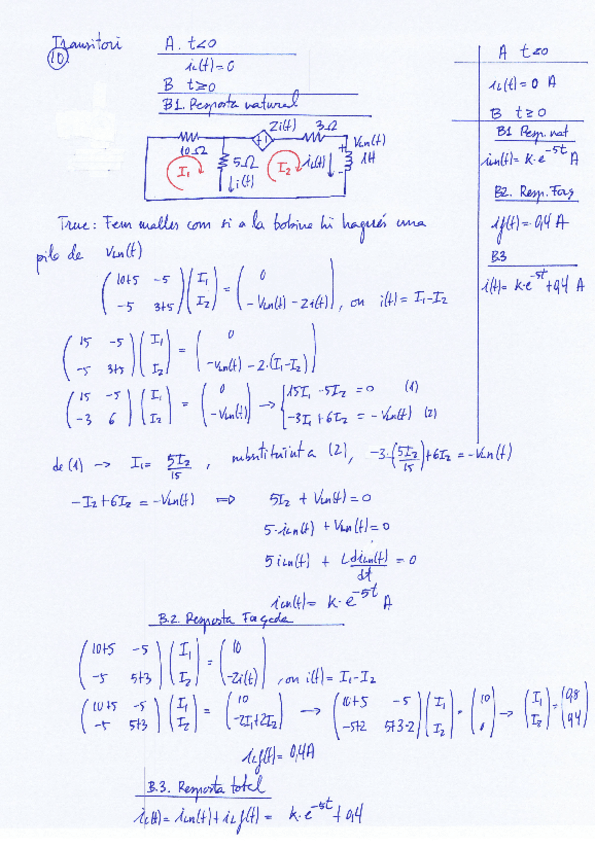 Transitori
10
A. t<0
iL(t)=0
B t≥0
B1. Resposta natural
10Ω
2i(t)
3Ω
5Ω
i(t)
I1
I2
iL(t)
+
-
VLn(t)
1H
Truc: Fem malles com si a la bobina hi hagués una
pila de VLn(t)
(10+5 -5; -5 3+5)(I1; I2) = (0; -VLn(t) - 2i(t)), on i(t) = I1-I2
(15 -5; -5 3+5)(I1; I2) = (0; -VLn(t) - 2·(I1-I2))
(15 -5; -3 6)(I1; I2) = (0; -VLn(t)) → { 15I1 -5I2 = 0 (1)
-3I1 + 6I2 = -VLn(t) (2)
de (1) → I1 = 5I2/15, substituint a (2), -3·(5I2/15)+6I2 = -VLn(t)
-I2+6I2 = -VLn(t) ⇒ 5I2 + VLn(t) = 0
5·iLn(t) + VLn(t) = 0
5iLn(t) + L diLn(t)/dt = 0
iLn(t) = k·e^-5t A
B.2. Resposta Forçada
(10+5 -5; -5 5+3)(I1; I2) = (10; -2i(t)), on i(t) = I1-I2
(10+5 -5; -5 5+3)(I1; I2) = (10; -2I1+2I2) → (10+5 -5; -5+2 5+3-2)(I1; I2) = (10; 0) → (I1; I2) = (0,8; 0,4)
iLf(t) = 0,4A
B.3. Resposta total
iL(t) = iLn(t) + iLf(t) = k·e^-5t + 0,4
A t≤0
iL(t) = 0 A
B t≥0
B1 Resp. nat
iLn(t) = k·e^-5t A
B2. Resp. Forç
iLf(t) = 0,4 A
B.3
iL(t) = k·e^-5t + 0,4 A